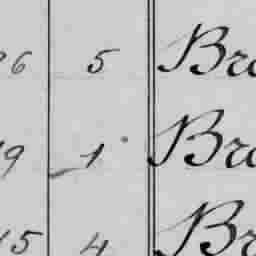 26 5 Bro
19 1 Bro
15 4 Br